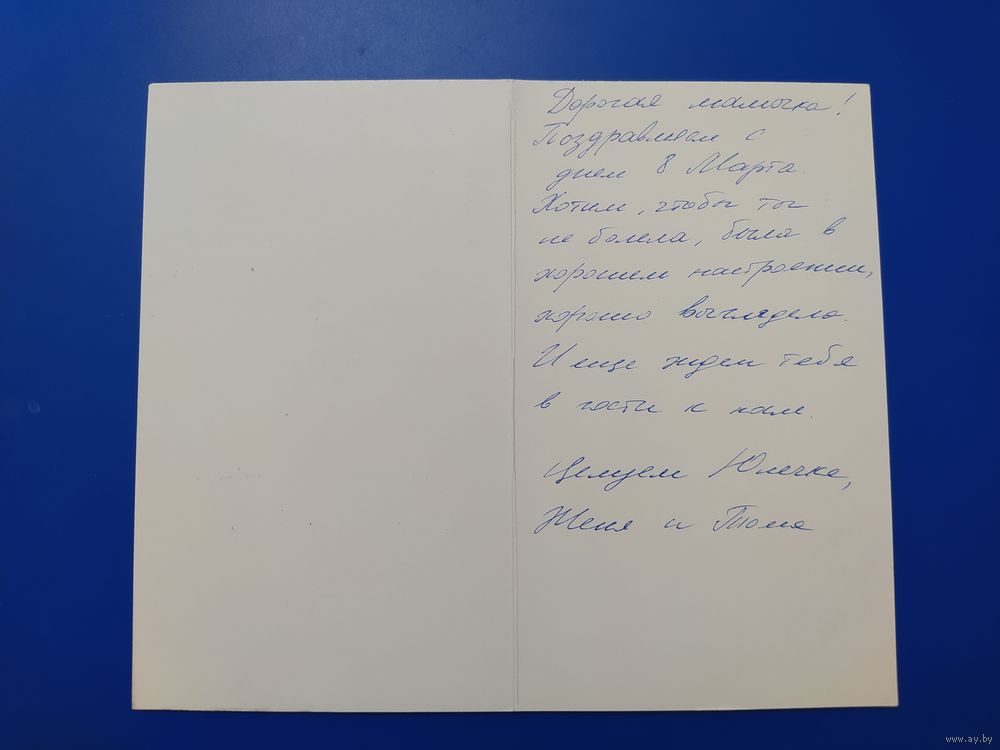 Дорогая мамочка!
Поздравляем с
днем 8 Марта.
Хотим, чтобы ты
не болела, была в
хорошем настроении,
хорошо выглядела.
И еще ждем тебя
в гости к нам.
Целуем Юлечка,
Женя и Тома
www.ay.by